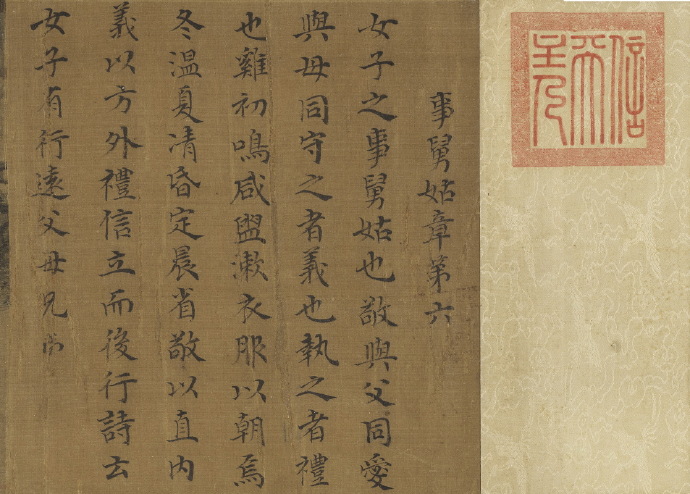 信天主人
事舅姑章第六
女子之事舅姑也敬與父同愛
與母同守之者義也執之者禮
也雞初鳴咸盥漱衣服以朝焉
冬溫夏凊昏定晨省敬以直內
義以方外禮信立而後行詩云
女子有行遠父母兄弟